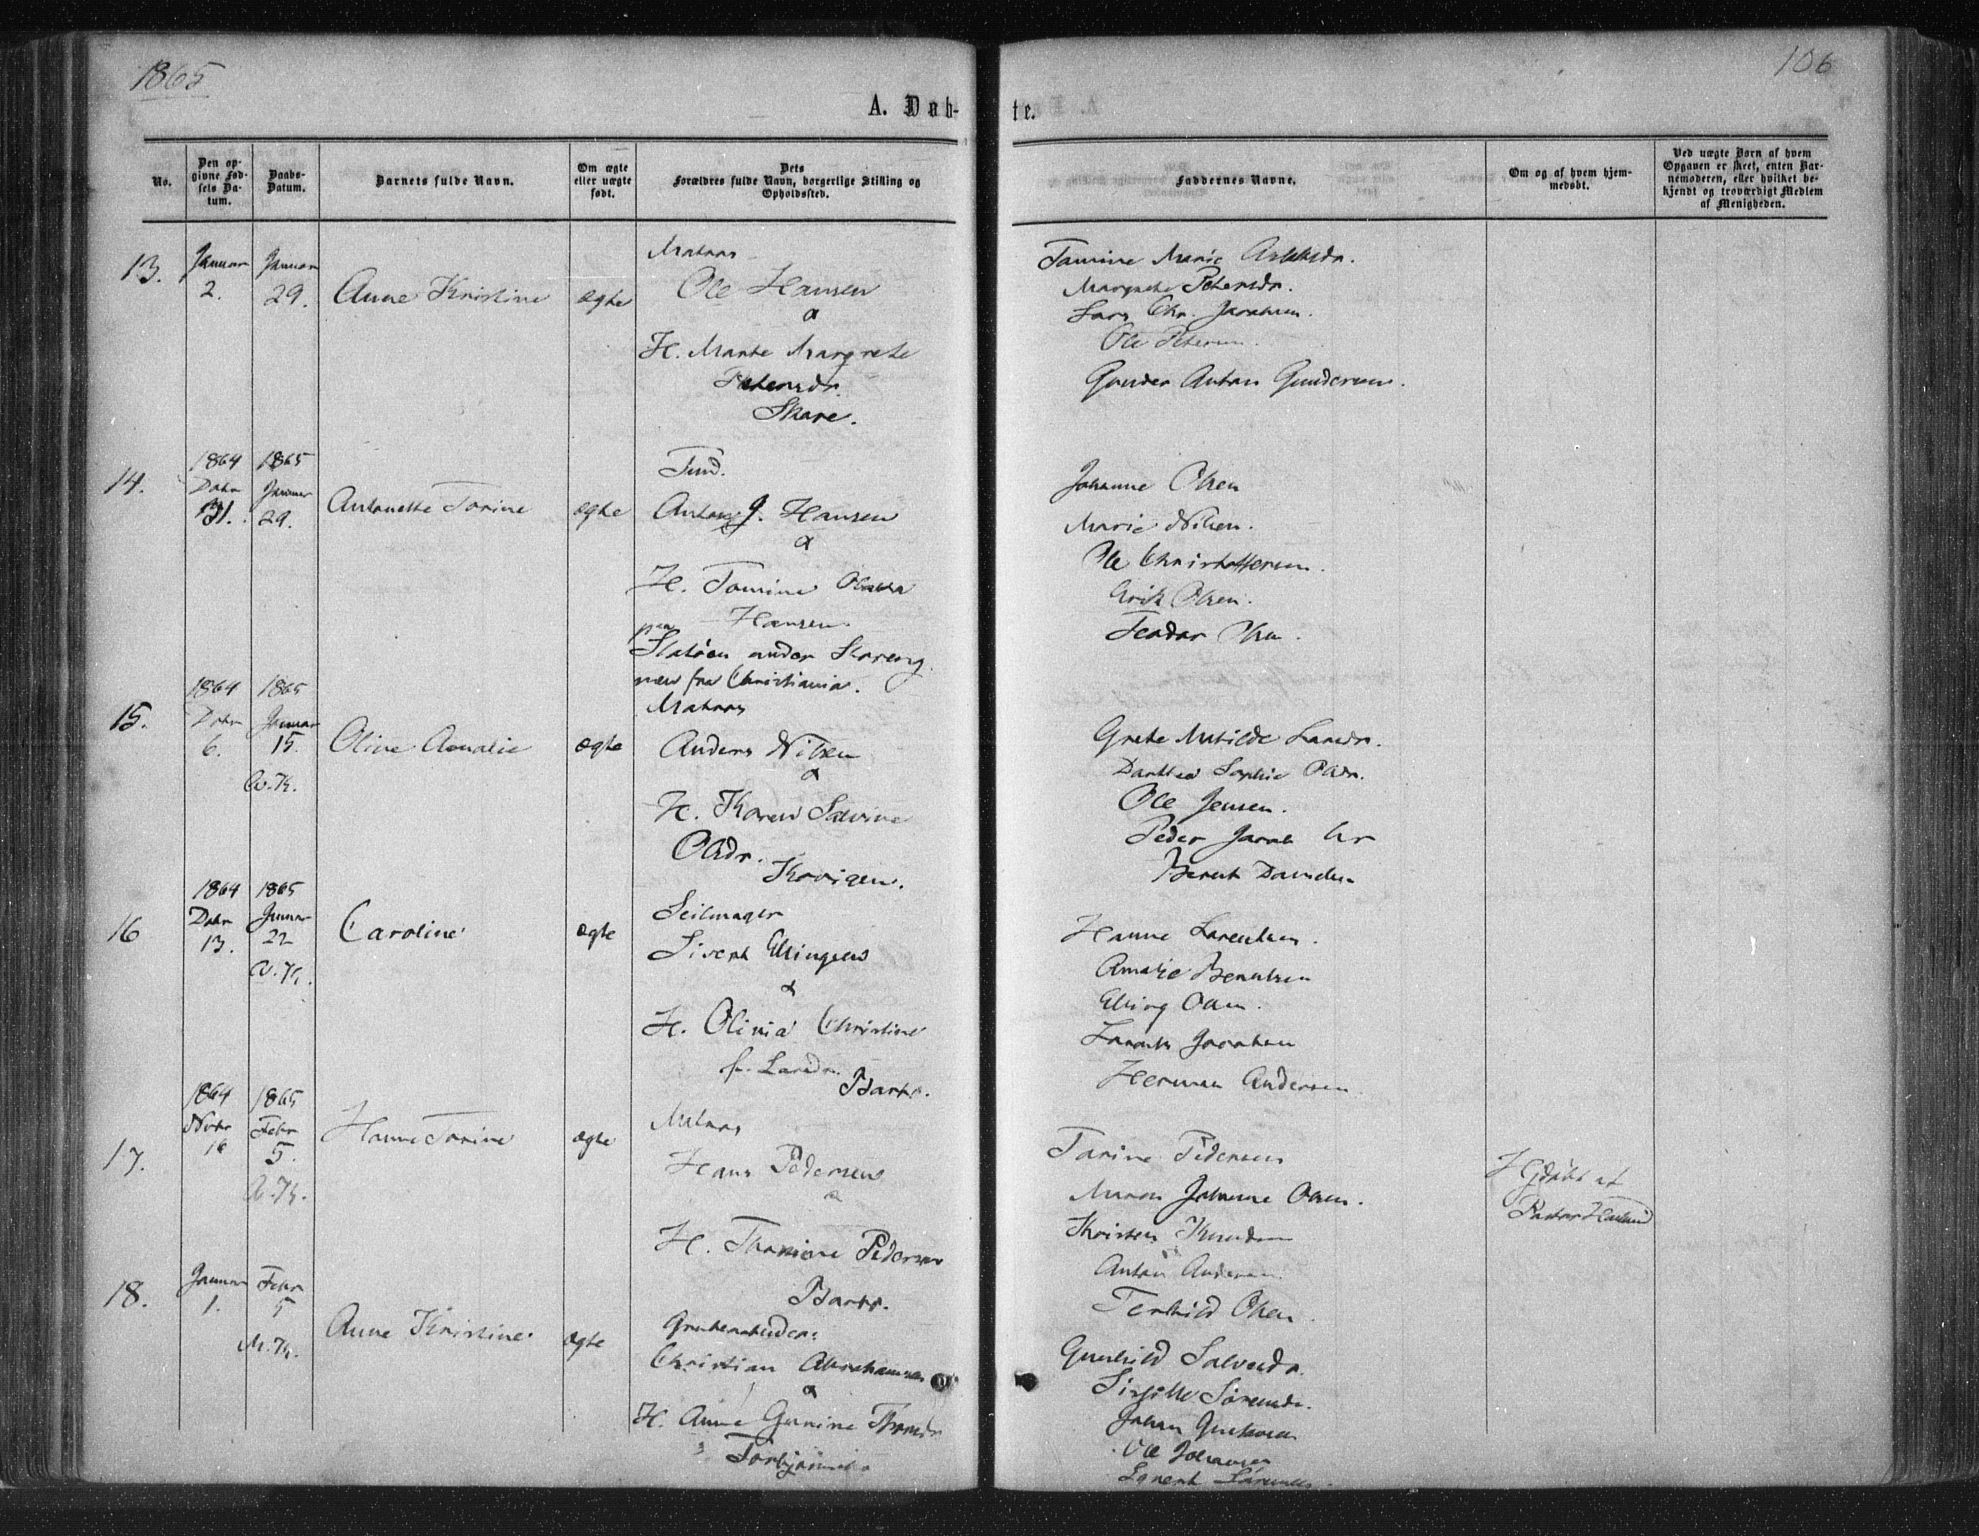 1865
106
A. Døb-
te.
No.
Den op-
givne Fød-
sels Da-
tum.
Daabs-
Datum.
Barnets fulde Navn.
Om ægte
eller uægte
født.
Dets
Forældres fulde Navn, borgerlige Stilling og
Opholdssted.
Faddernes Navne.
Om og af hvem hjem-
medøbt.
Ved uægte Børn af hvem
Opgaven er skeet, enten Bar-
nemoderen, eller hvilket be-
kjendt og troværdigt Medlem
af Menigheden.
13.
Januar
2.
Januar
29.
Anne Kristine
ægte
Matros
Ole Hansen
&
H. Marte Margrete
Petersdr.
Skare.
Tomine Marie
Margrete Petersdr.
Lars Chr. Jacobsen.
Ole Petersen.
Gunder Anton Gundersen.
14.
1864
Dcbr
31.
1865
Januar
29.
Antonette Torine
ægte
Anton J. Hansen
&
H. Tomine
Hansen
paa
under
fra Christiania.
Johanne Olsen
Marie Nilsen.
Ole Christoffersen.
Erik Olsen.
Teodor Olsen.
15.
1864
Dcbr
6.
1865
Januar
15.
Oline Amalie
ægte
Matros
Anders Nilsen
&
H. Karen Salvine
Olsdr.
Grete Matilde Larsdr.
Dorthea Sophie Olsdr.
Ole Jensen.
Peder Jacob
Berent Danielsen
16
1864
Dcbr
13.
1865
Januar
22
Caroline
ægte
Seilmager
Sivert Ellingsen
&
H. Olinia Christine
f. Larsdr.
Barbo.
Hanne Larentsen.
Amalie Berntsen
Elling Olsen.
Jacobsen
Herman Andersen
17.
1864
Novbr
16
1865
Febr
5.
Hanne Torine
ægte
Matros
Hans Pedersen
&
H. Thomine Pedersen
Barbo.
Torine Pedersen
Maren Johanne Olsen.
Kristen Knudsen
Anton Andersen
Terkild Olsen.
Hjdøbt af
Pastor
18.
Januar
1.
Febr
5
Anne Kristine
ægte
Grubearbeider
Christian Abrahamsen
&
H. Anne Gunine Thomdr
Gunhild Salvesdr.
Sørensdr.
Johan Gustavsen
Ole Johansen